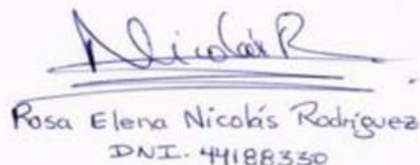 Nicolás R
Rosa Elena Nicolás Rodríguez
DNI. 44188330